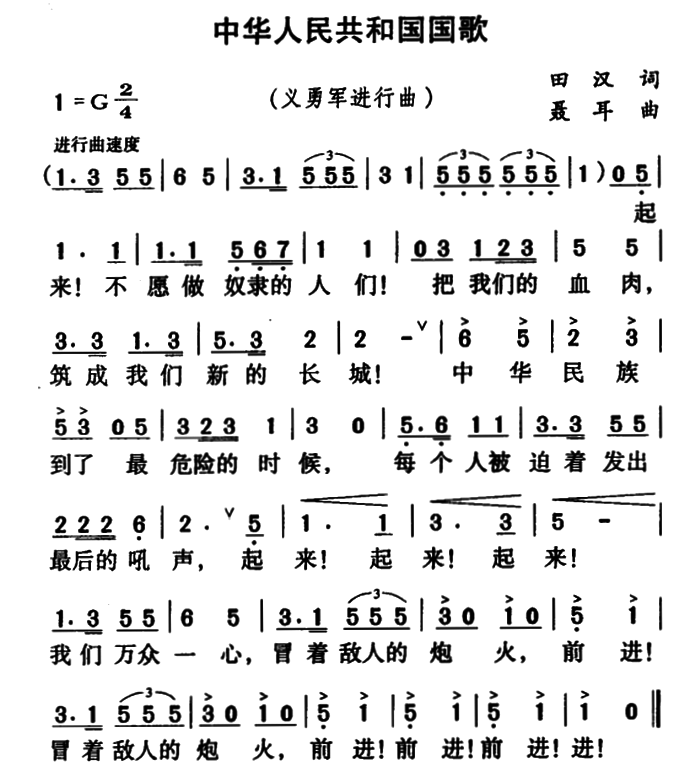 中华人民共和国国歌
1=G 2/4 (义勇军进行曲) 田汉 词
聂耳 曲
进行曲速度
(1·3 55|65|3·1 555|31|555 555|1)05|
起
1·1|1·1 567|1 1|03 123|5 5|
来!不愿做奴隶的人们!把我们的血肉,
3·3 1·3|5·3 2|2 -∨|6 5|2 3|
筑成我们新的长城!中华民族
53 05|323 1|3 0|5·6 11|3·3 55|
到了最危险的时候,每个人被迫着发出
222 6|2·∨5|1·1|3·3|5 -|
最后的吼声,起来!起来!起来!
1·3 55|6 5|3·1 555|30 10|5 1|
我们万众一心,冒着敌人的炮火,前进!
3·1 555|30 10|5 1|5 1|5 1|1 0‖
冒着敌人的炮火,前进!前进!前进!进!